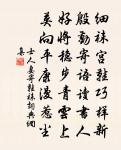 细袜宫鞋巧样新
殷勤寄语读书人
好将稳步青云上
莫向平康漫惹尘
士人妻寄鞋袜
词典网
集